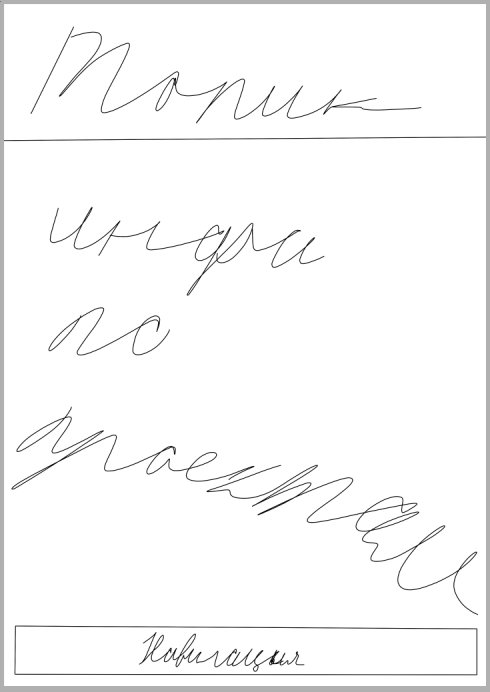 Топик
инфа
по
проектам
Навигация